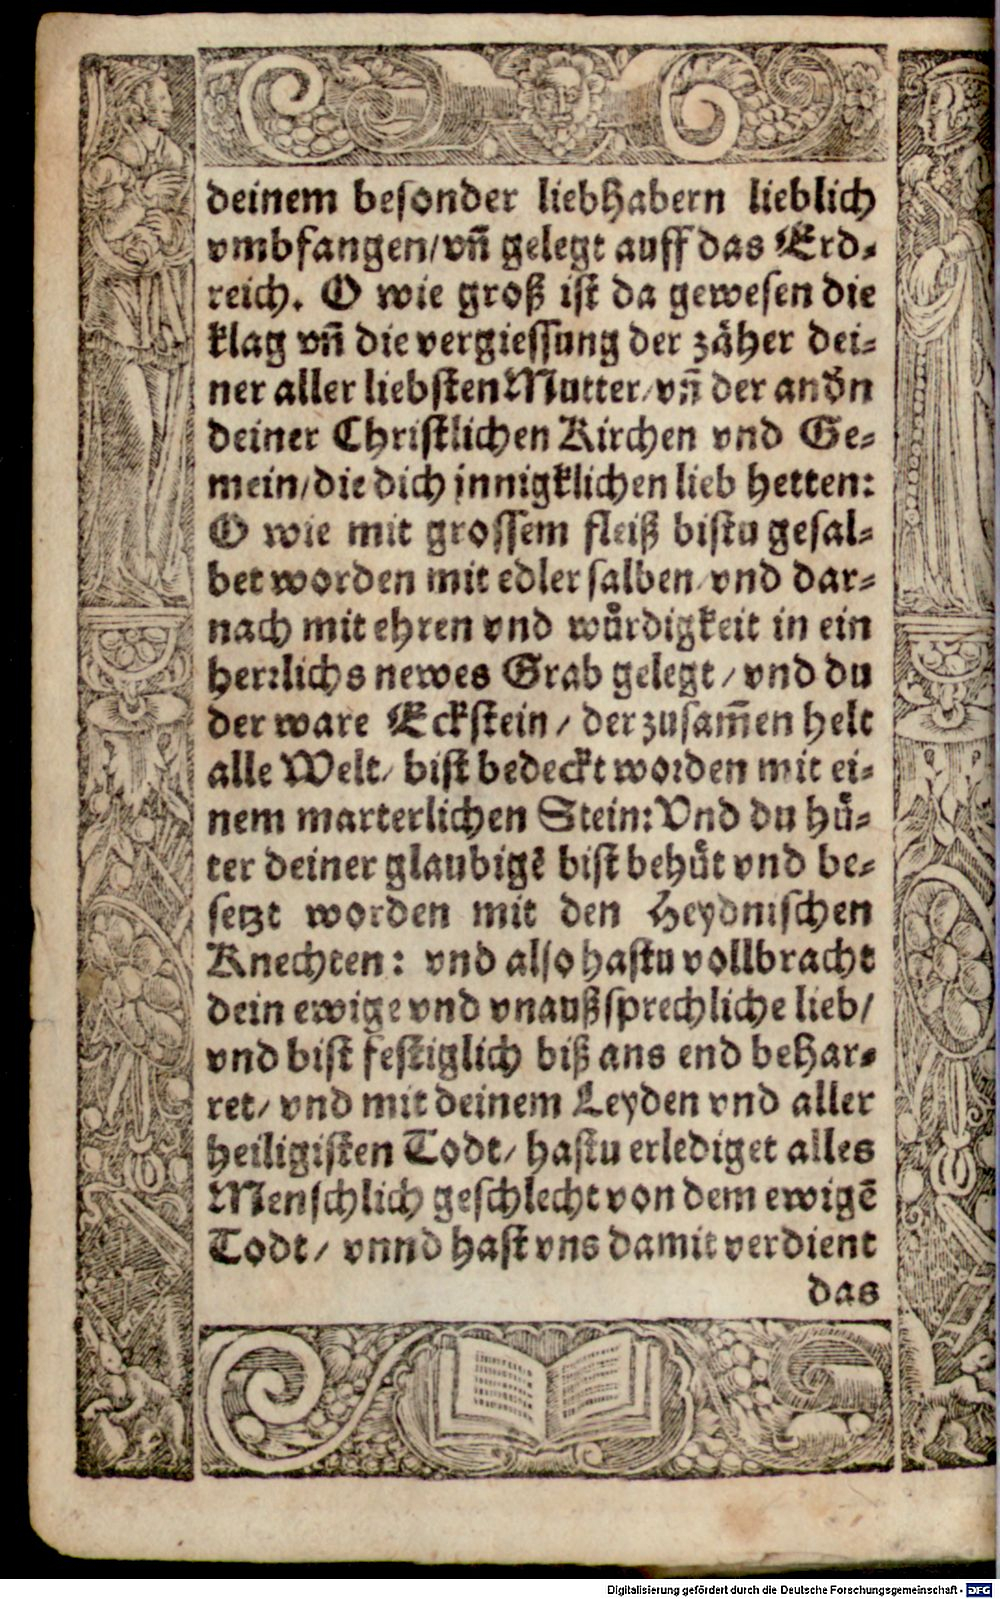 deinem besonder liebhabern lieblich
vmbfangen/ vn̄ gelegt auff das Erd⸗
reich. O wie groß ist da gewesen die
klag vn̄ die vergiessung der zäher dei⸗
ner aller liebsten Mutter/ vn̄ der andn̄
deiner Christlichen Kirchen vnd Ge⸗
mein/ die dich innigklichen lieb hetten:
O wie mit grossem fleiß bistu gesal⸗
bet worden mit edler salben/ vnd dar⸗
nach mit ehren vnd wuͤrdigkeit in ein
herrlichs newes Grab gelegt/ vnd du
der ware Eckstein/ der zusam̄en helt
alle Welt/ bist bedeckt worden mit ei⸗
nem marterlichen Stein: Vnd du huͤ⸗
ter deiner glaubigē bist behuͤt vnd be⸗
setzt worden mit den Heydnischen
Knechten: vnd also hastu vollbracht
dein ewige vnd vnaußsprechliche lieb/
vnd bist festiglich biß ans end behar⸗
ret/ vnd mit deinem Leyden vnd aller
heiligisten Todt/ hastu erlediget alles
Menschlich geschlecht von dem ewigē
Todt/ vnnd hast vns damit verdient
das
Digitalisierung gefördert durch die Deutsche Forschungsgemeinschaft - DFG